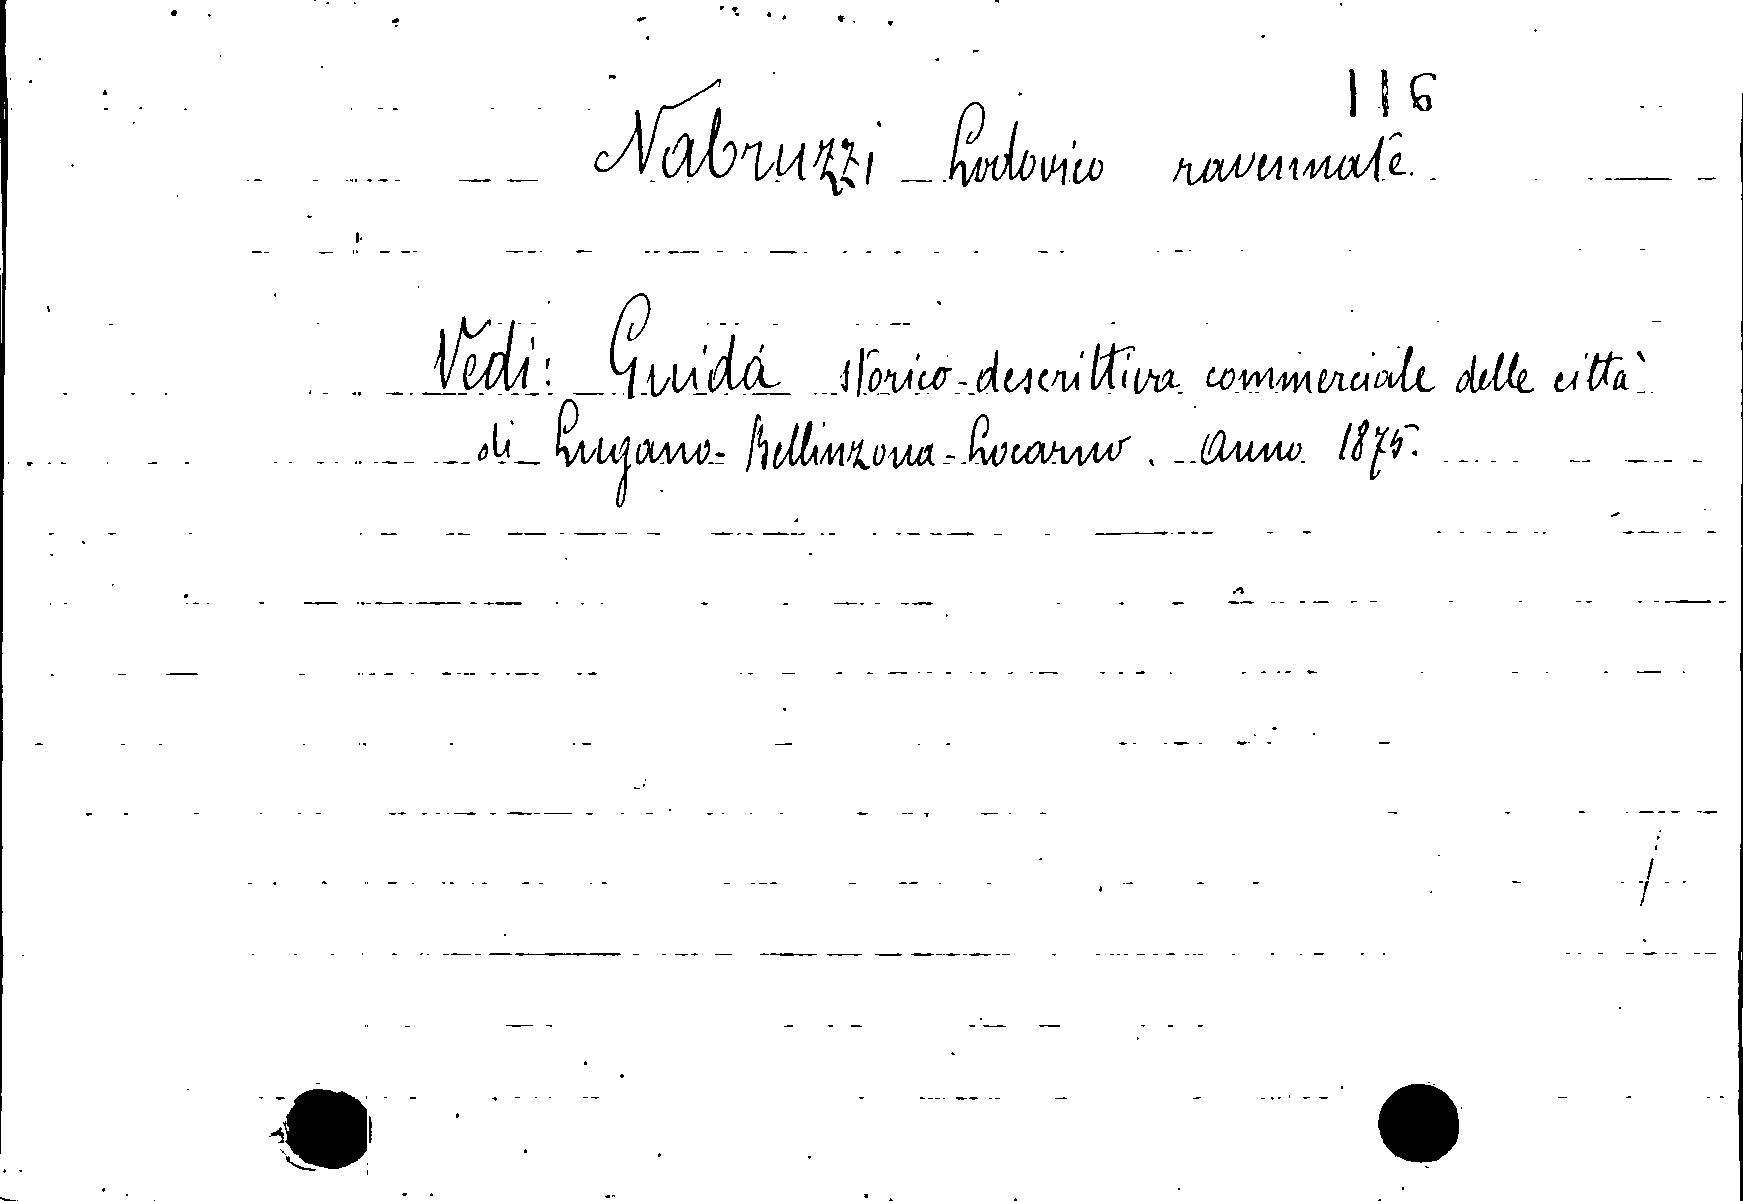 116
Nabruzzi Lodovico ravennate.
Vedi: Guida storico-descrittiva commerciale delle città
di Lugano-Bellinzona-Locarno. Anno 1875.